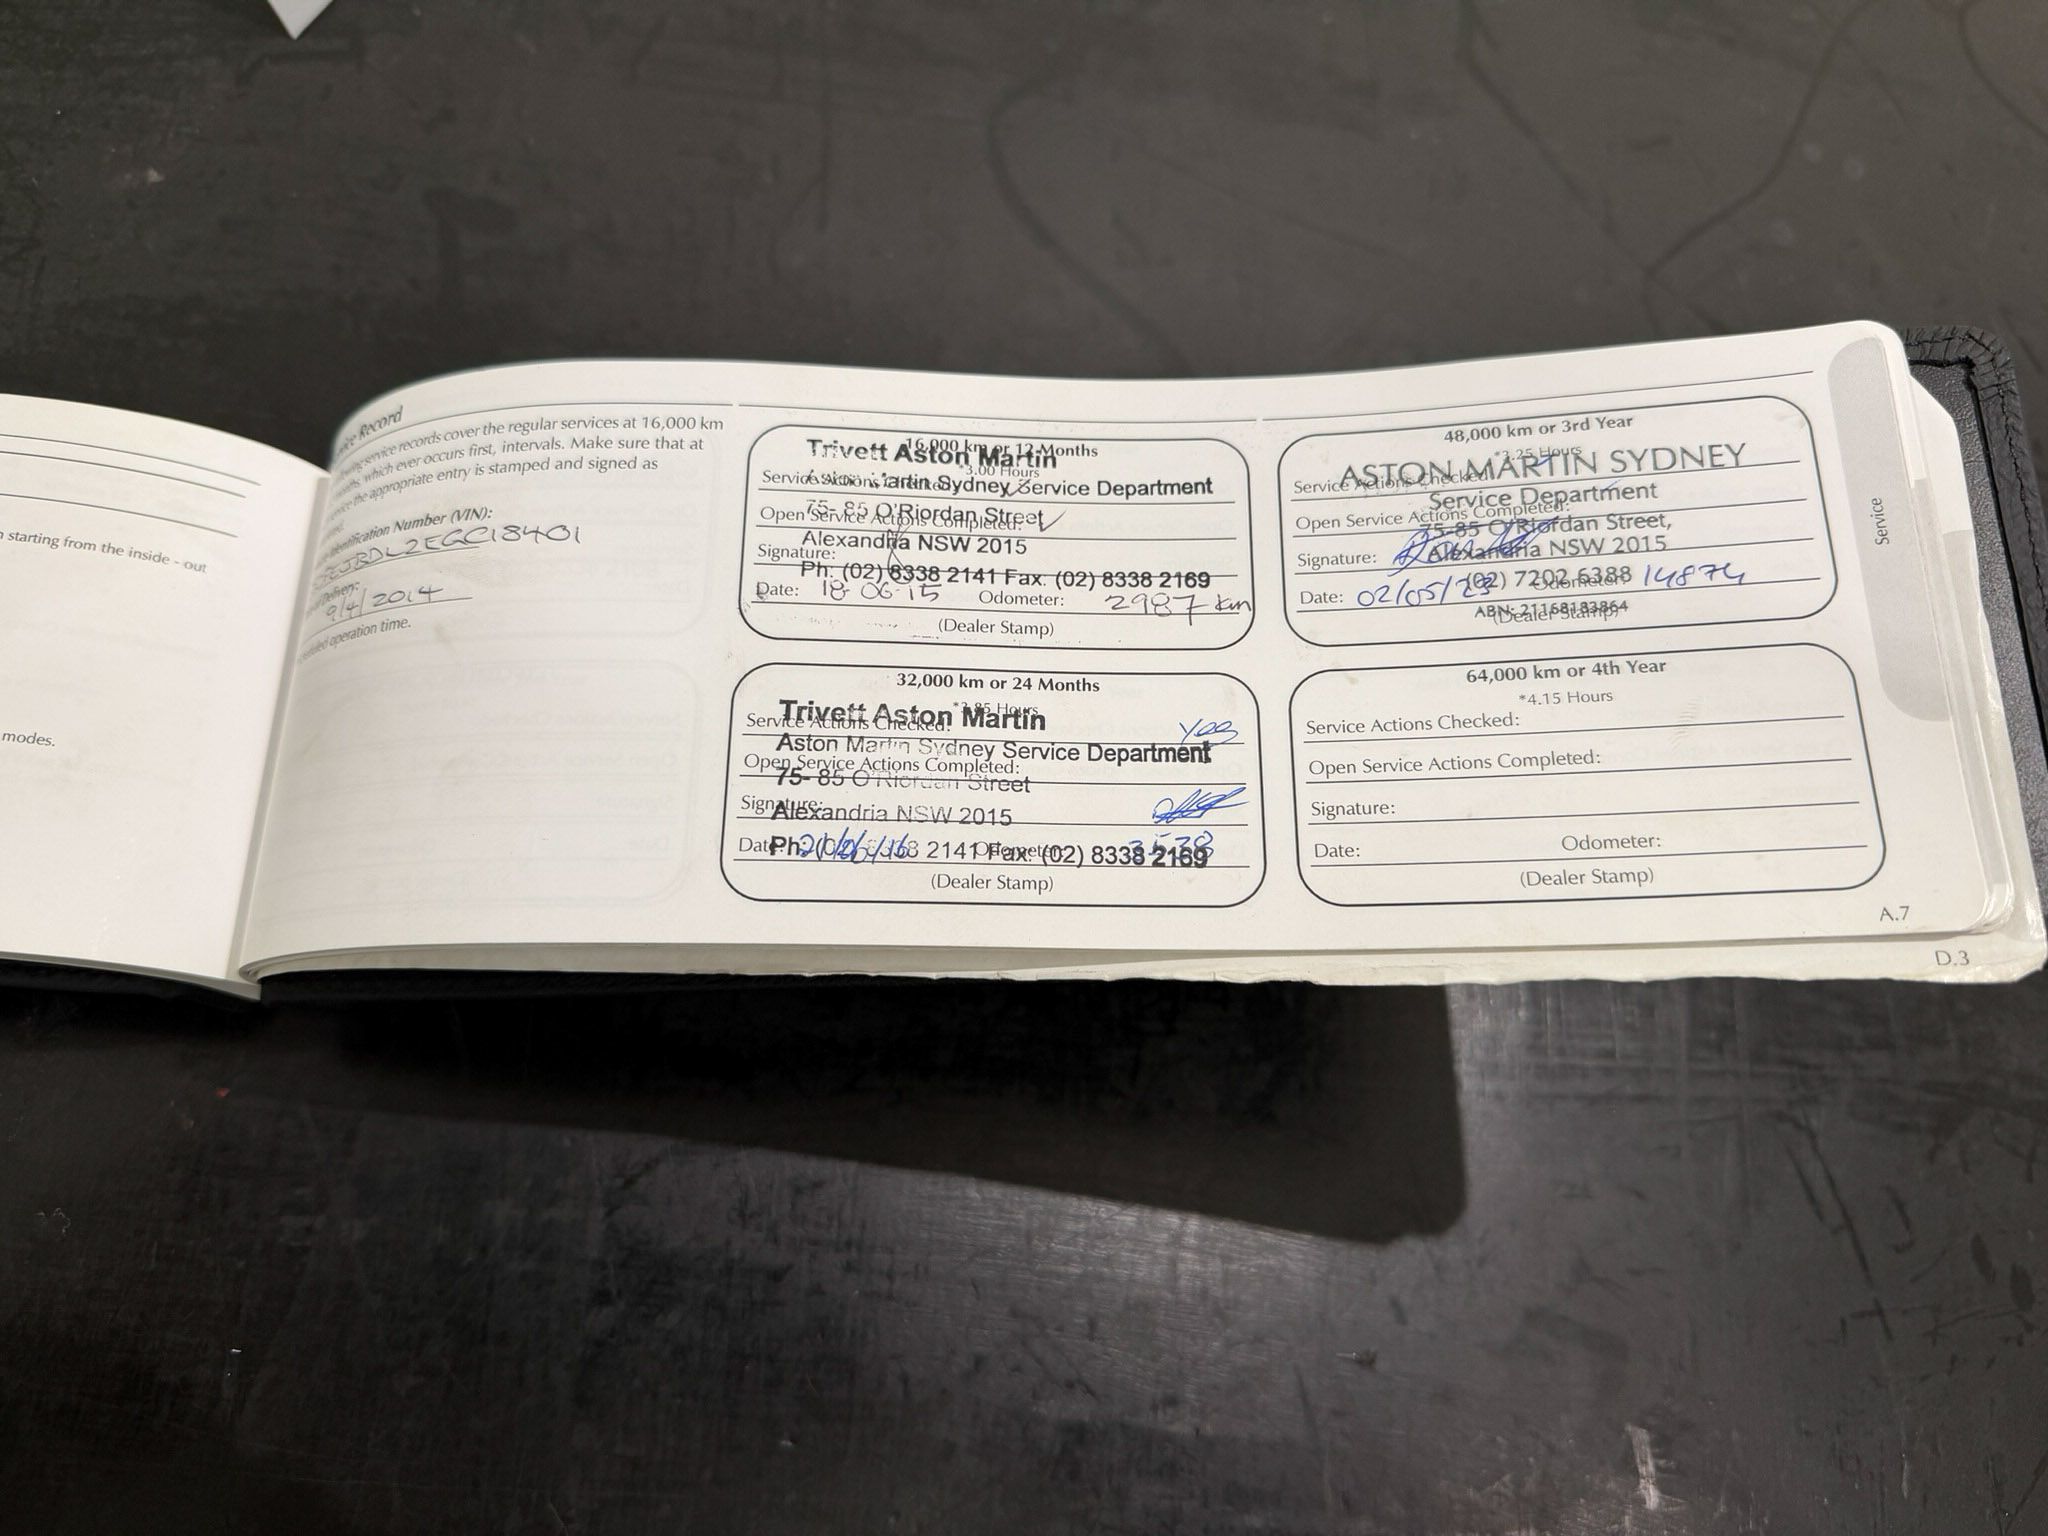 starting from the inside - out
modes.
Record
service records cover the regular services at 16,000 km
which ever occurs first, intervals. Make sure that at
the appropriate entry is stamped and signed as
Identification Number (VIN):
9/4/2014
operation time.
16,000 km or 12 Months
Trivett Aston Martin
*3.00 Hours
Martin Sydney Service Department
75- 85 O'Riordan Street
Open Service Actions Completed:
Alexandria NSW 2015
Signature:
Ph: (02) 8338 2141 Fax: (02) 8338 2169
Date: 18-06-15 Odometer: 2987 km
(Dealer Stamp)
32,000 km or 24 Months
Trivett Aston Martin
Service Actions Checked: Yes
Aston Martin Sydney Service Department
Open Service Actions Completed:
75- 85 O'Riordan Street
Signature:
Alexandria NSW 2015
Date:
Ph: 2141 Fax: (02) 8338 2169
(Dealer Stamp)
48,000 km or 3rd Year
*3.25 Hours
ASTON MARTIN SYDNEY
Service Actions Checked:
Service Department
Open Service Actions Completed:
75-85 O'Riordan Street,
Signature:
Alexandria NSW 2015
(02) 7202 6388
Date: 02/05/23 Odometer: 14874
ABN: 21168183864
(Dealer Stamp)
64,000 km or 4th Year
*4.15 Hours
Service Actions Checked:
Open Service Actions Completed:
Signature:
Date: Odometer:
(Dealer Stamp)
Service
A.7
D.3